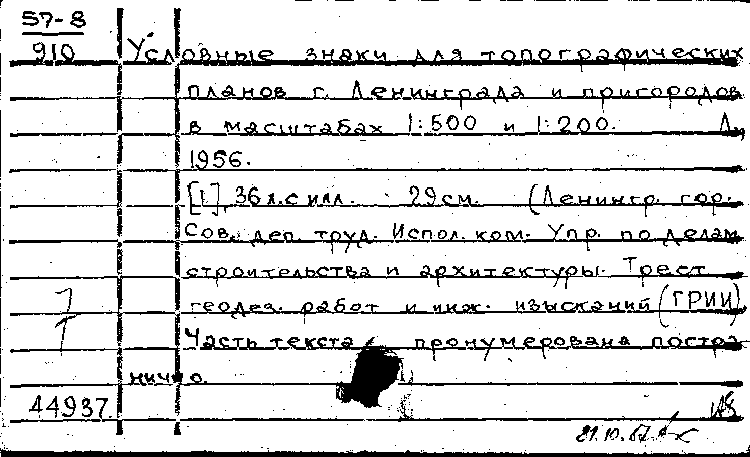 57-8
910 Условные знаки для топографических
планов г. Ленинграда и пригородов
в масштабах 1:500 и 1:200. Л.,
1956.
[1], 36 л. с илл. 29 см. (Ленингр. гор.
Сов. деп. труд. Испол. ком. Упр. по делам
строительства и архитектуры. Трест
геодез. работ и инж. изысканий (ГРИИ)
Часть текста пронумерована постра
нично.
44937